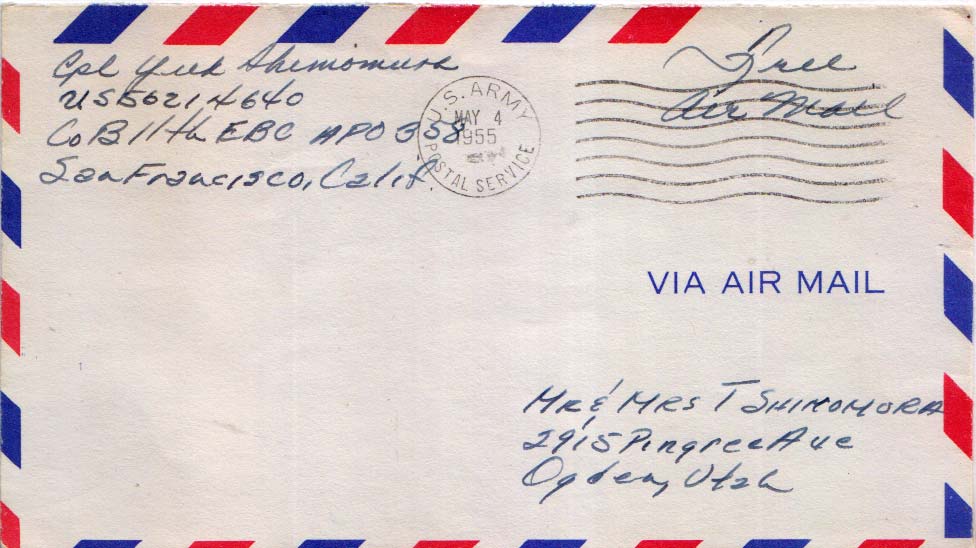 Cpl Yuk Shimomura
US56214640
Co B 11th EBC APO 358
San Francisco, Calif.
U.S. ARMY
MAY 4
1955
POSTAL SERVICE
Free
Air Mail
VIA AIR MAIL
Mr & Mrs T SHIMOMURA
2915 Pingree Ave
Ogden, Utah